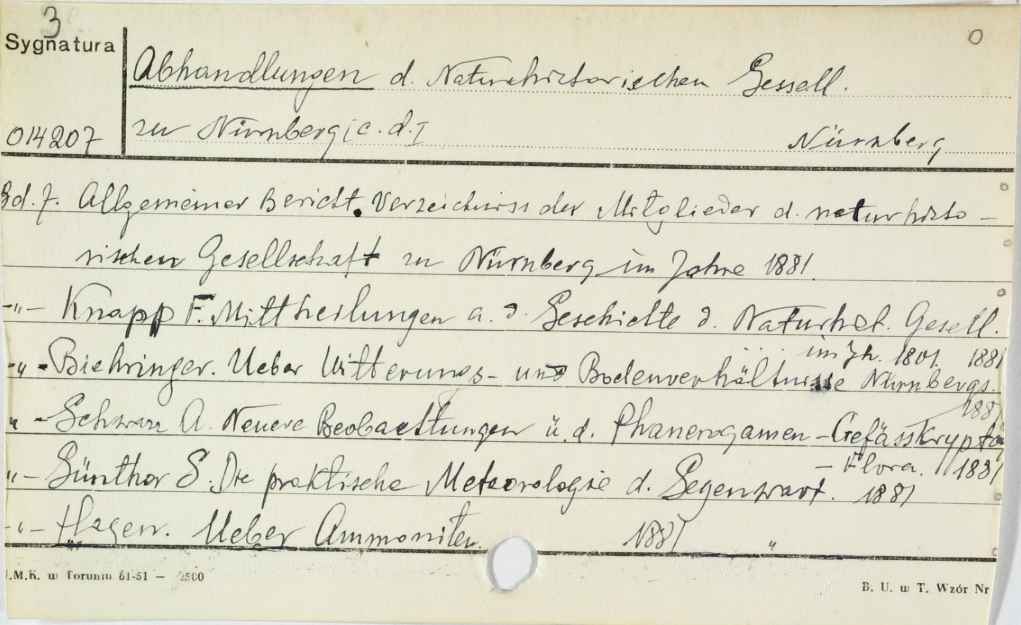 3
0
Sygnatura
Abhandlungen d. Naturhistorischen Gesell.
014207 zu Nürnberg; c. d. I Nürnberg
Bd. 7. Allgemeiner Bericht. Verzeichniss der Mitglieder d. naturhisto-
rischen Gesellschaft zu Nürnberg im Jahre 1881.
-"- Knapp F. Mittheilungen a. d. Geschichte d. Naturhist. Gesell.
im Jh. 1801. 1881
-"- Biehringer. Ueber Witterungs- und Bodenverhältnisse Nürnbergs.
1881
"- Schwarz A. Neuere Beobachtungen ü. d. Phanerogamen-Gefässkrypto
- Flora. 1881
"- Günther S. Die praktische Meteorologie d. Gegenwart. 1881
-"- Hagen. Ueber Ammoniten. 1881 "
.M.K. w Toruniu 61-51 — 2500
B. U. w T. Wzór Nr